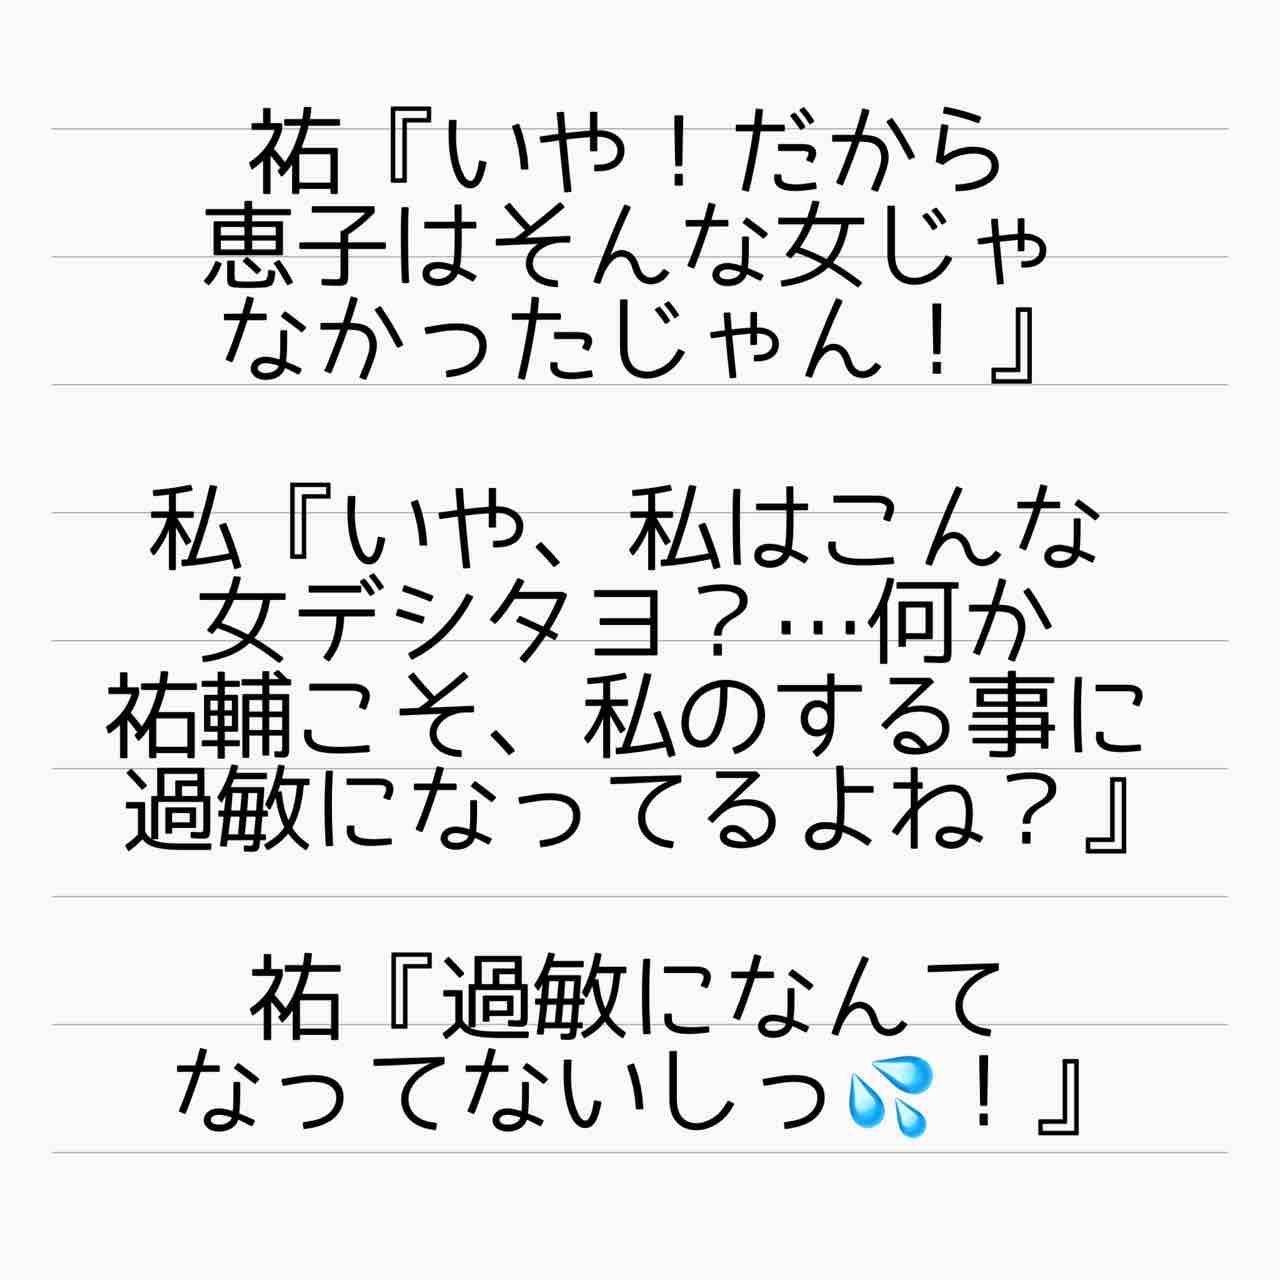 祐『いや！だから
恵子はそんな女じゃ
なかったじゃん！』
私『いや、私はこんな
女デシタヨ？…何か
祐輔こそ、私のする事に
過敏になってるよね？』
祐『過敏になんて
なってないしっ💦！』